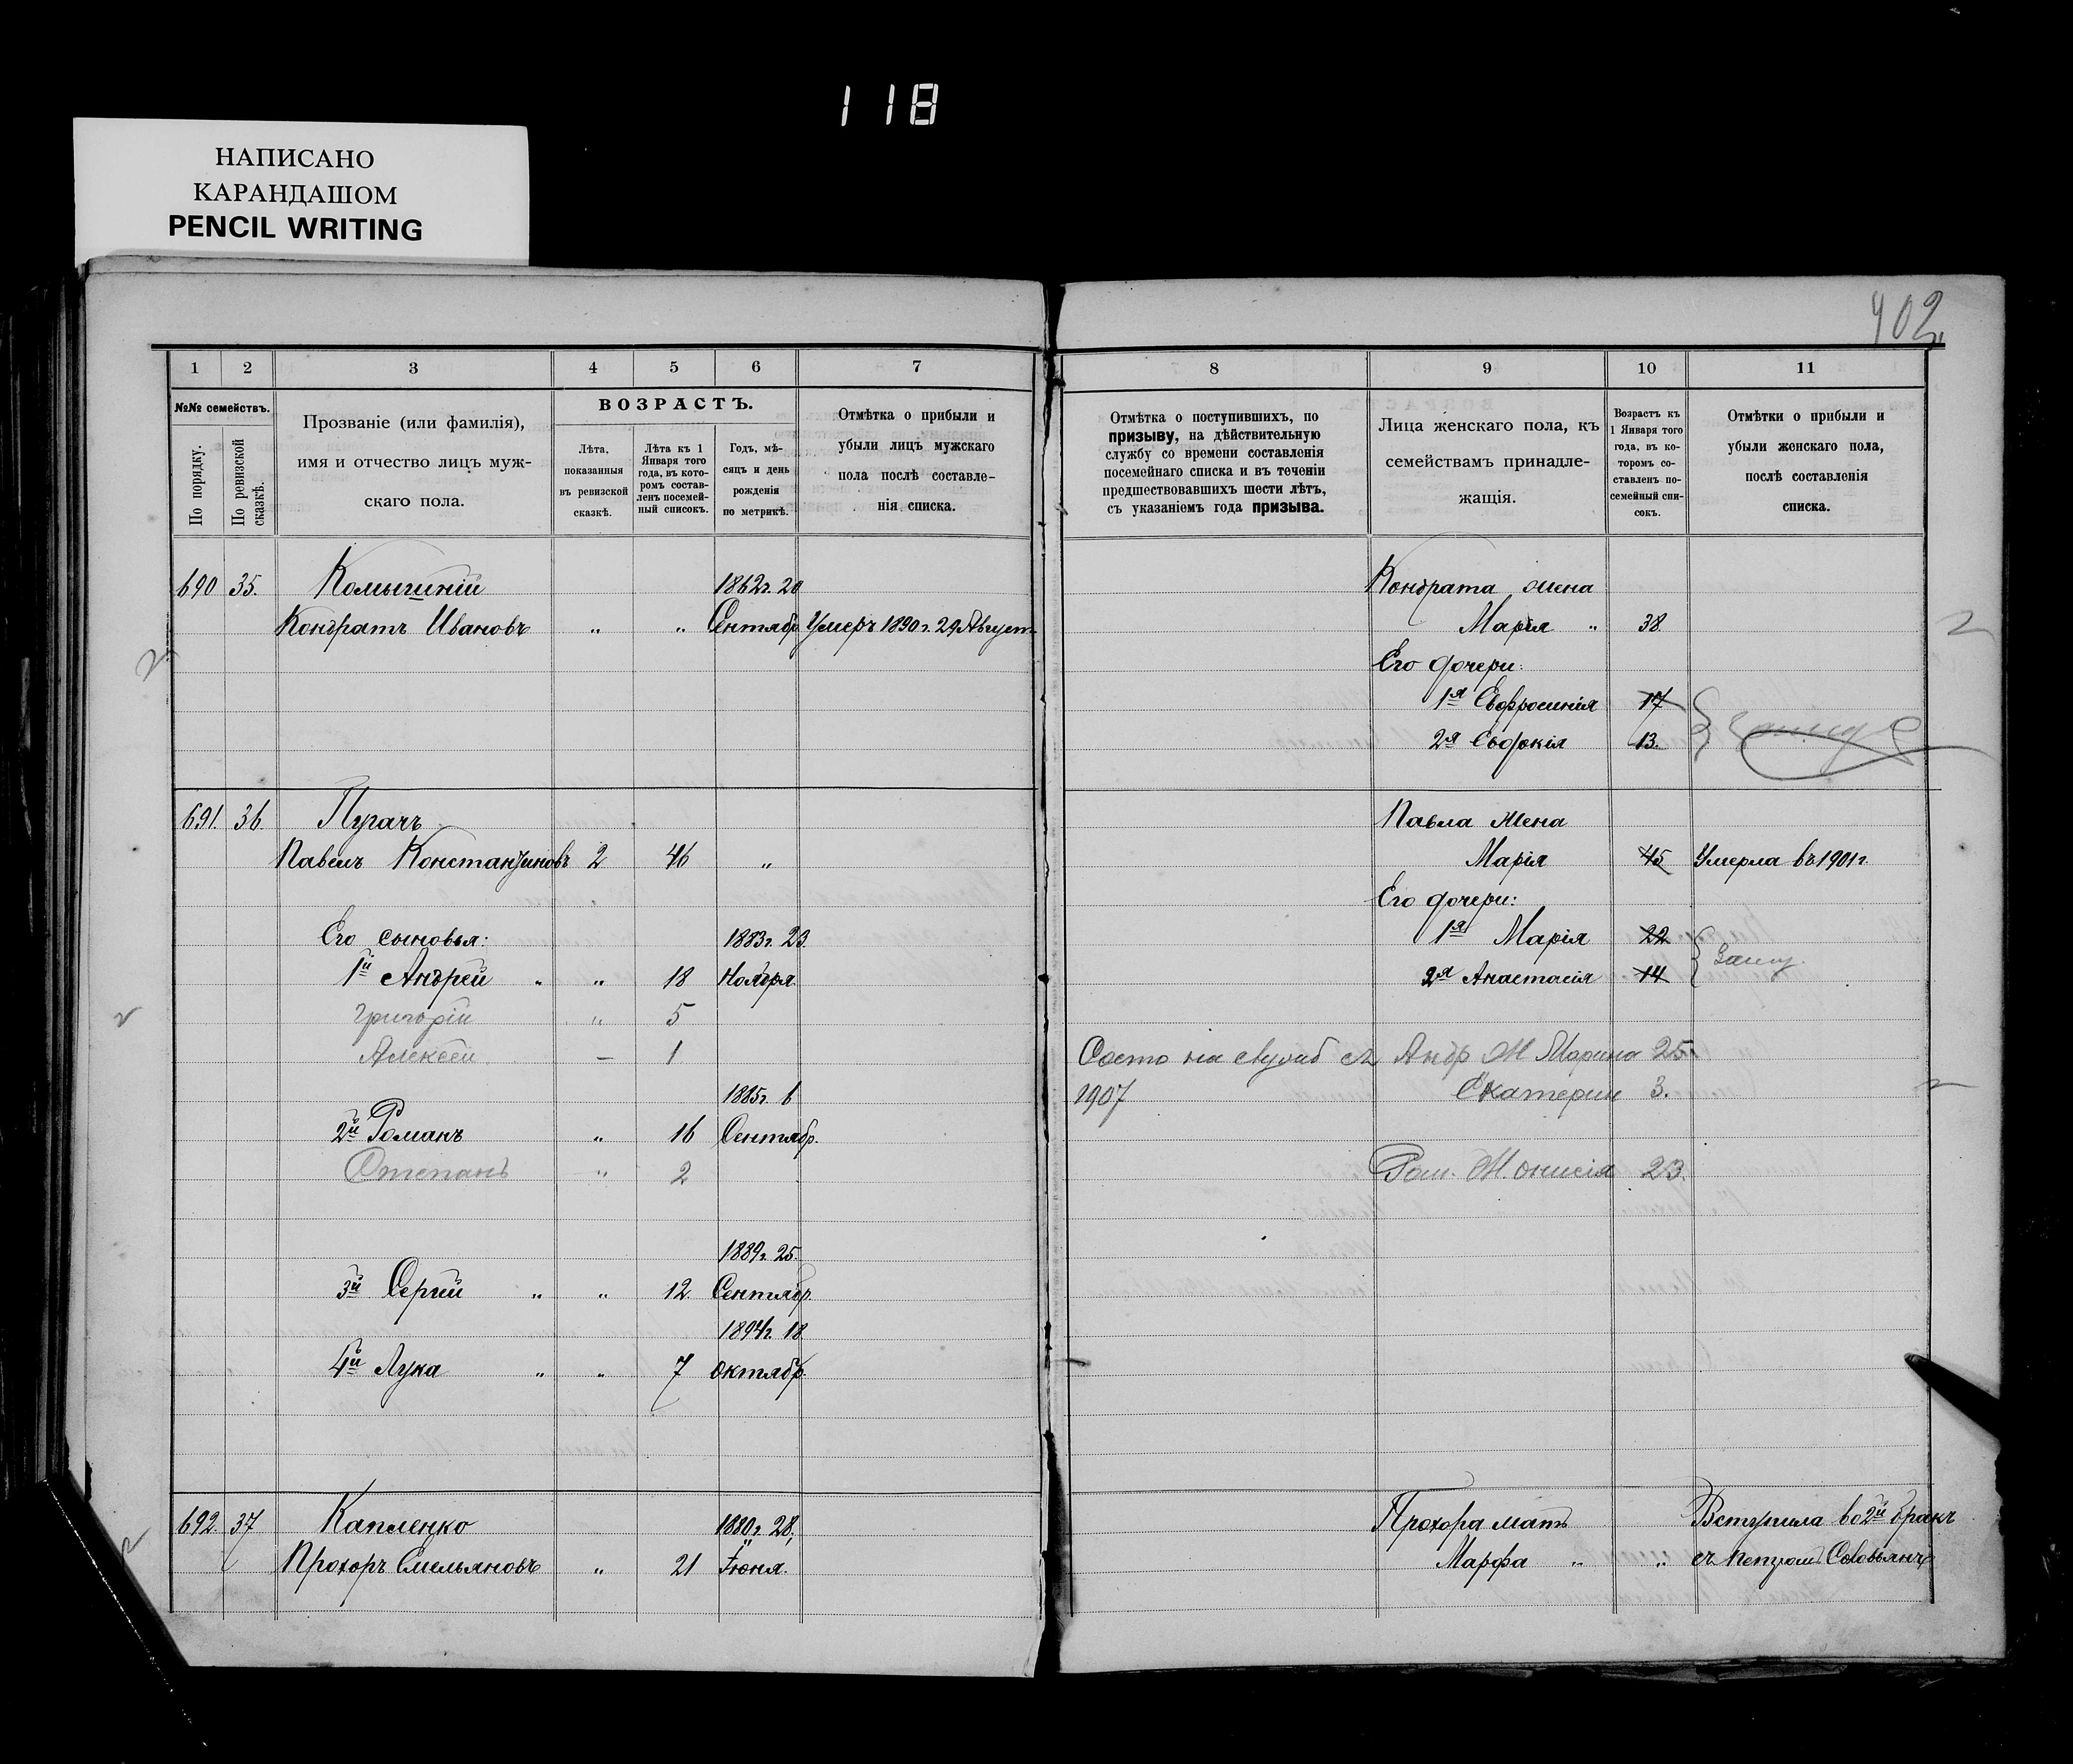 118
НАПИСАНО
КАРАНДАШОМ
PENCIL WRITING
402.
1 2 3 4 5 6 7
№№ семействъ.
По порядку.
По ревизской сказкѣ.
Прозваніе (или фамилія),
имя и отчество лицъ муж-
скаго пола.
ВОЗРАСТЪ.
Лѣта,
показанныя
въ ревизской
сказкѣ.
Лѣта къ 1
Января того
года, въ кото-
ромъ состав-
ленъ посемей-
ный списокъ.
Годъ, мѣ-
сяцъ и день
рожденія
по метрикѣ.
Отмѣтка о прибыли и
убыли лицъ мужскаго
пола послѣ составле-
нія списка.
690 35. 1862г. 20
Кондратъ Ивановъ „ „ Сентябр Умеръ 1890 г. 29 Август
691. 36. Пугачъ
Павелъ Константиновъ 2 46 „
Его сыновья: 1883г. 23
1й Андрей „ „ 18 Ноября
Григорій „ 5
Алексѣй — 1
1885г. 6
2й Романъ „ 16 Сентябр.
Степанъ „ 2
1889г. 25.
3й Сергѣй „ „ 12 Сентябр.
1894г. 18
4й Лука „ „ 7 Октябр.
692. 37 Капленко 1880г. 28,
Прохоръ Емельяновъ „ 21 Іюня.
8 9 10 11
Отмѣтка о поступившихъ, по
призыву, на дѣйствительную
службу со времени составленія
посемейнаго списка и въ теченіи
предшествовавшихъ шести лѣтъ,
съ указаніемъ года призыва.
Лица женскаго пола, къ
семействамъ принадле-
жащія.
Возрастъ къ
1 Января того
года, въ ко-
торомъ со-
ставленъ по-
семейный спи-
сокъ.
Отмѣтки о прибыли и
убыли женскаго пола,
послѣ составленія
списка.
Кондрата жена
Марія „ 38.
Его дочери:
1я Евфросинія 17
2я Евдокія 13.
Павла жена
Марія 45 Умерла въ 1901г.
Его дочери:
1я Марія 22
2я Анастасія 14
Замуж.
Состо на служб съ Андр Ж Марина 25.
1907 Екатерин 3.
Ром. Ж. Онисія 23.
Прохора мать Вступила во 2й бракъ
Марфа „ „ съ